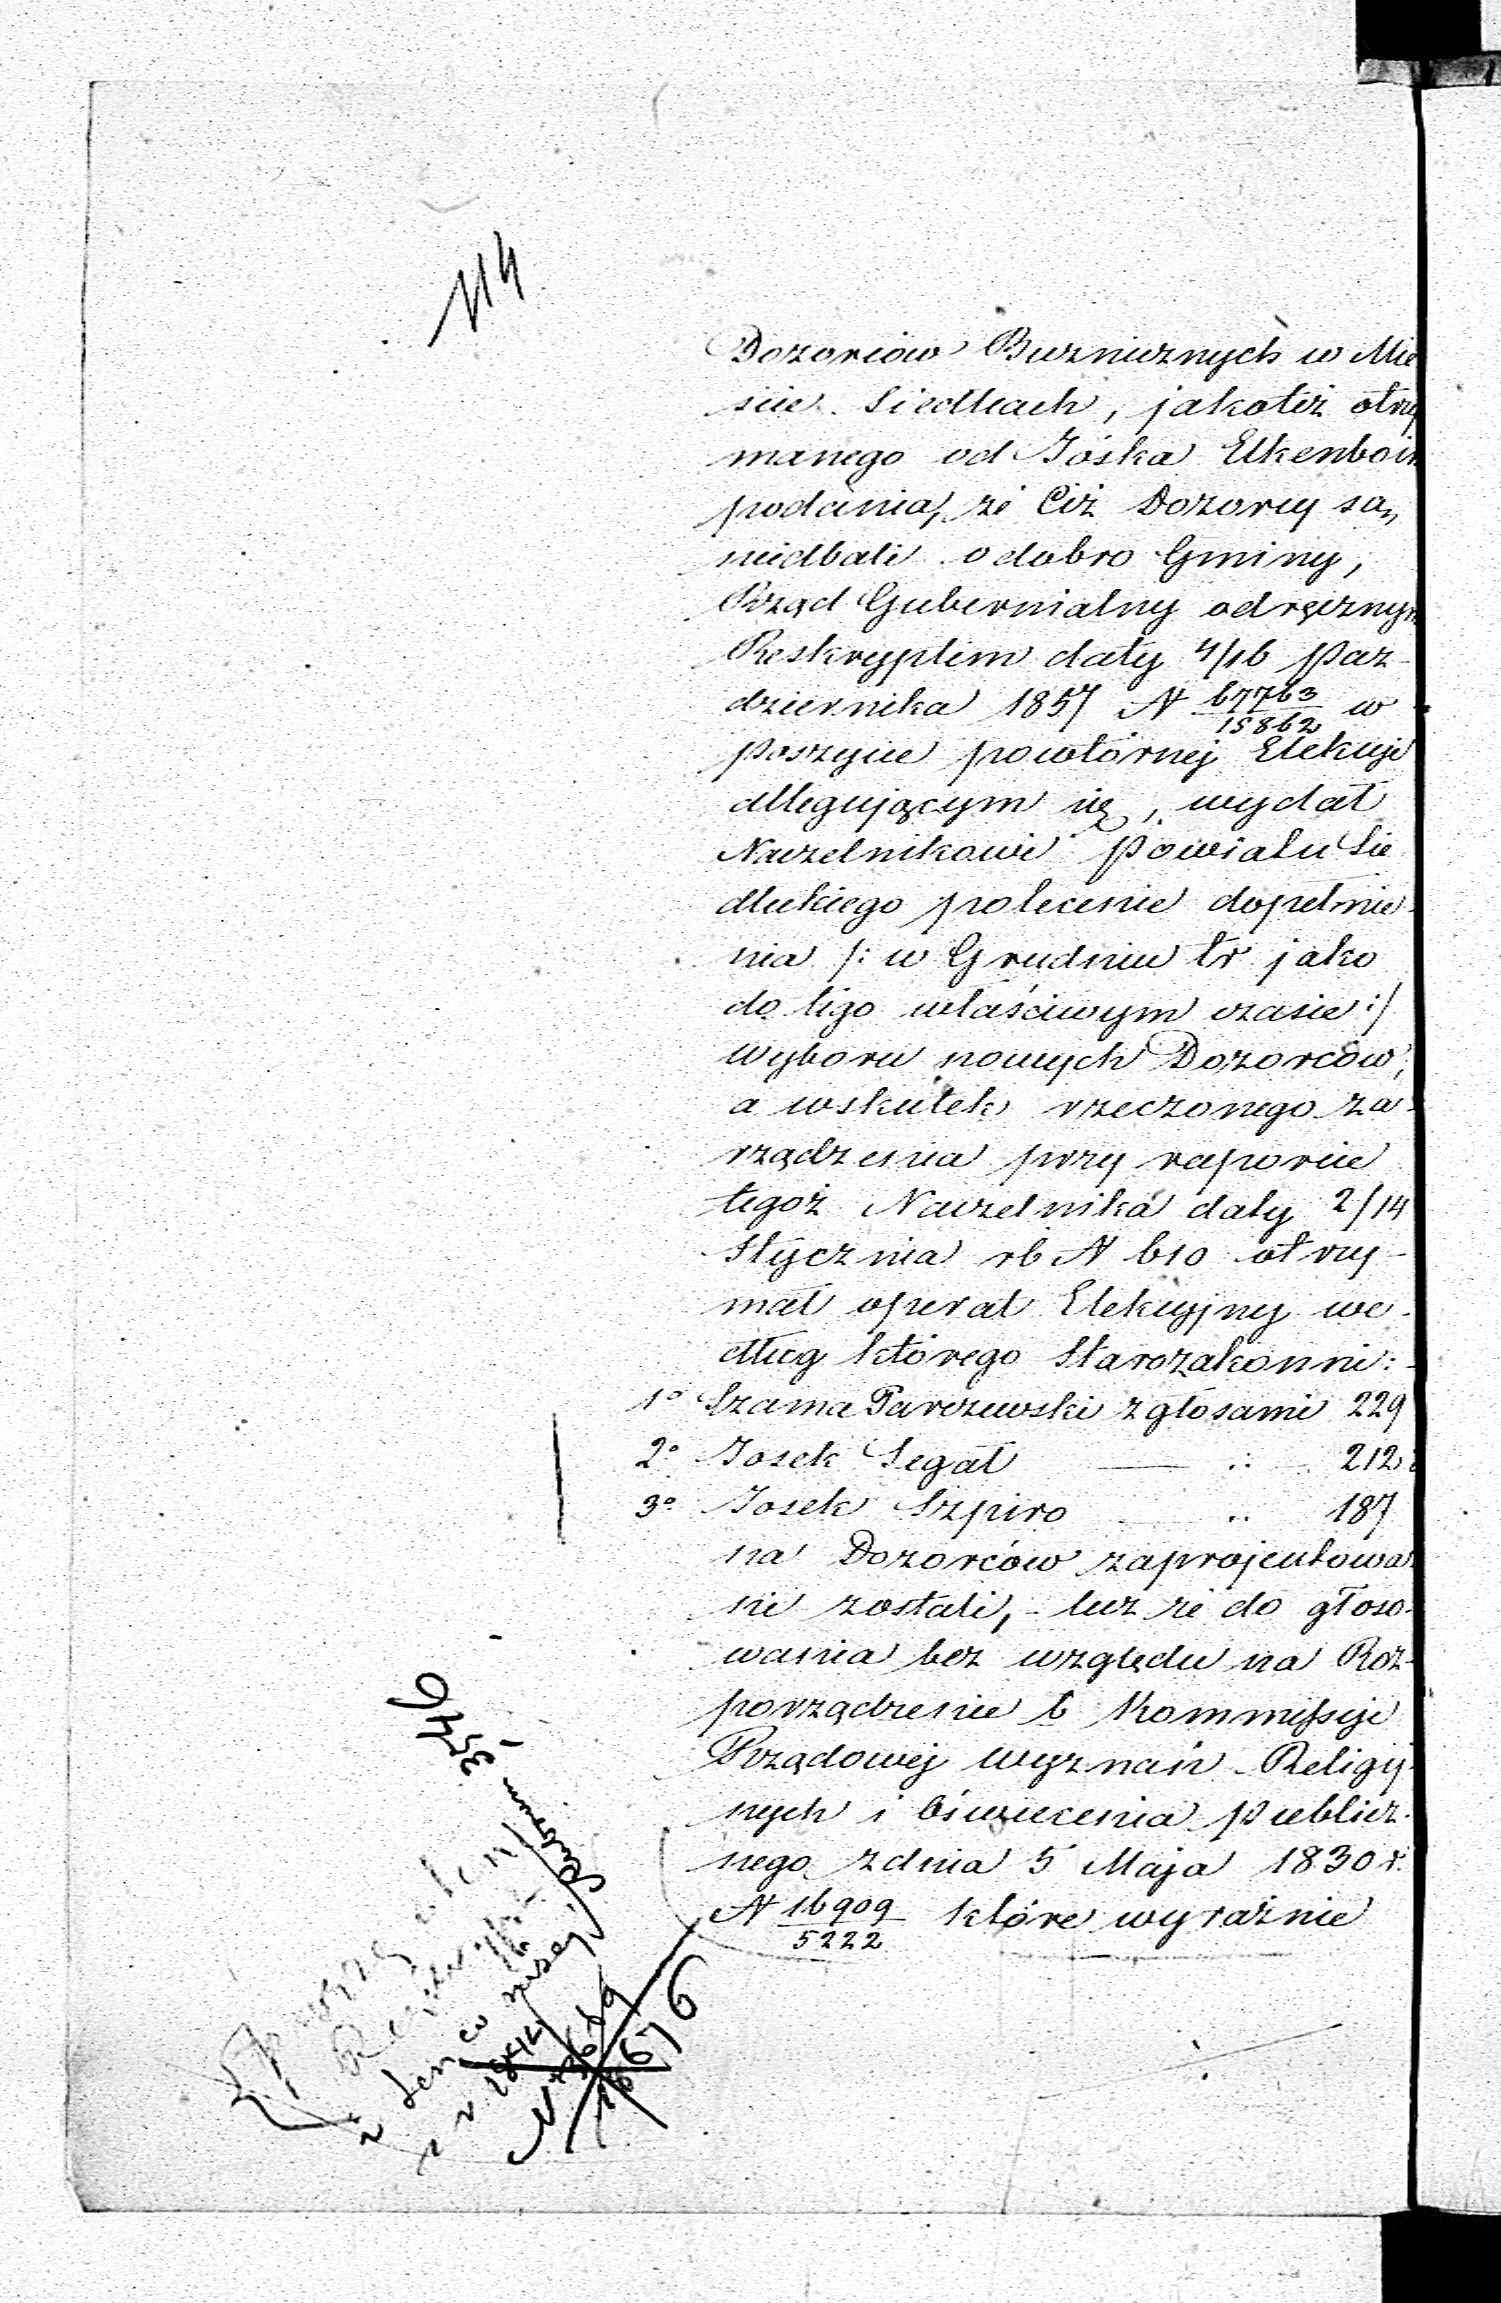 114
Dozorców Bużnicznych w Mie
ście Siedlcach, jakoteż otrzy
manego od Jośka Elkenboim
podania, że Ciż Dozorcy są,,
niedbali o dobro Gminy,
Rząd Gubernialny odręcznym
Reskryptem daty 4/16 Paz-
dziernika 1857 N 67763/15862 w
poszycie powtórnej Elekcyi
dllegującym się, wydał
Naczelnikowi Powiatu Sie
dleckiego polecenie dopełnie-
nia /: w Grudniu tr jako
do tego właściwym czasie :/
wyboru nowych Dozorców,
a wskutek rzeczonego za-
rządzenia przy raporcie
tegoż Naczelnika daty 2/14
Stycznia rb N 610 otrzy-
mał operat Elekcyjny we-
dług którego Starozakonni:-
1° Szama Parczewski z głosami 229
2° Josek Segał — ·· — 212
3° Josek Szpiro — ·· 187
na Dozorców zaprojektowa
ni zostali, - lecz że do głoso-
wania bez względu na Roz-
porządzenie b Kommissyi
Rządowej Wyznań Religij-
nych i Oświecenia Publicz-
nego z dnia 5 Maja 1830 r.
N 16909/5222 które wyraźnie
3546